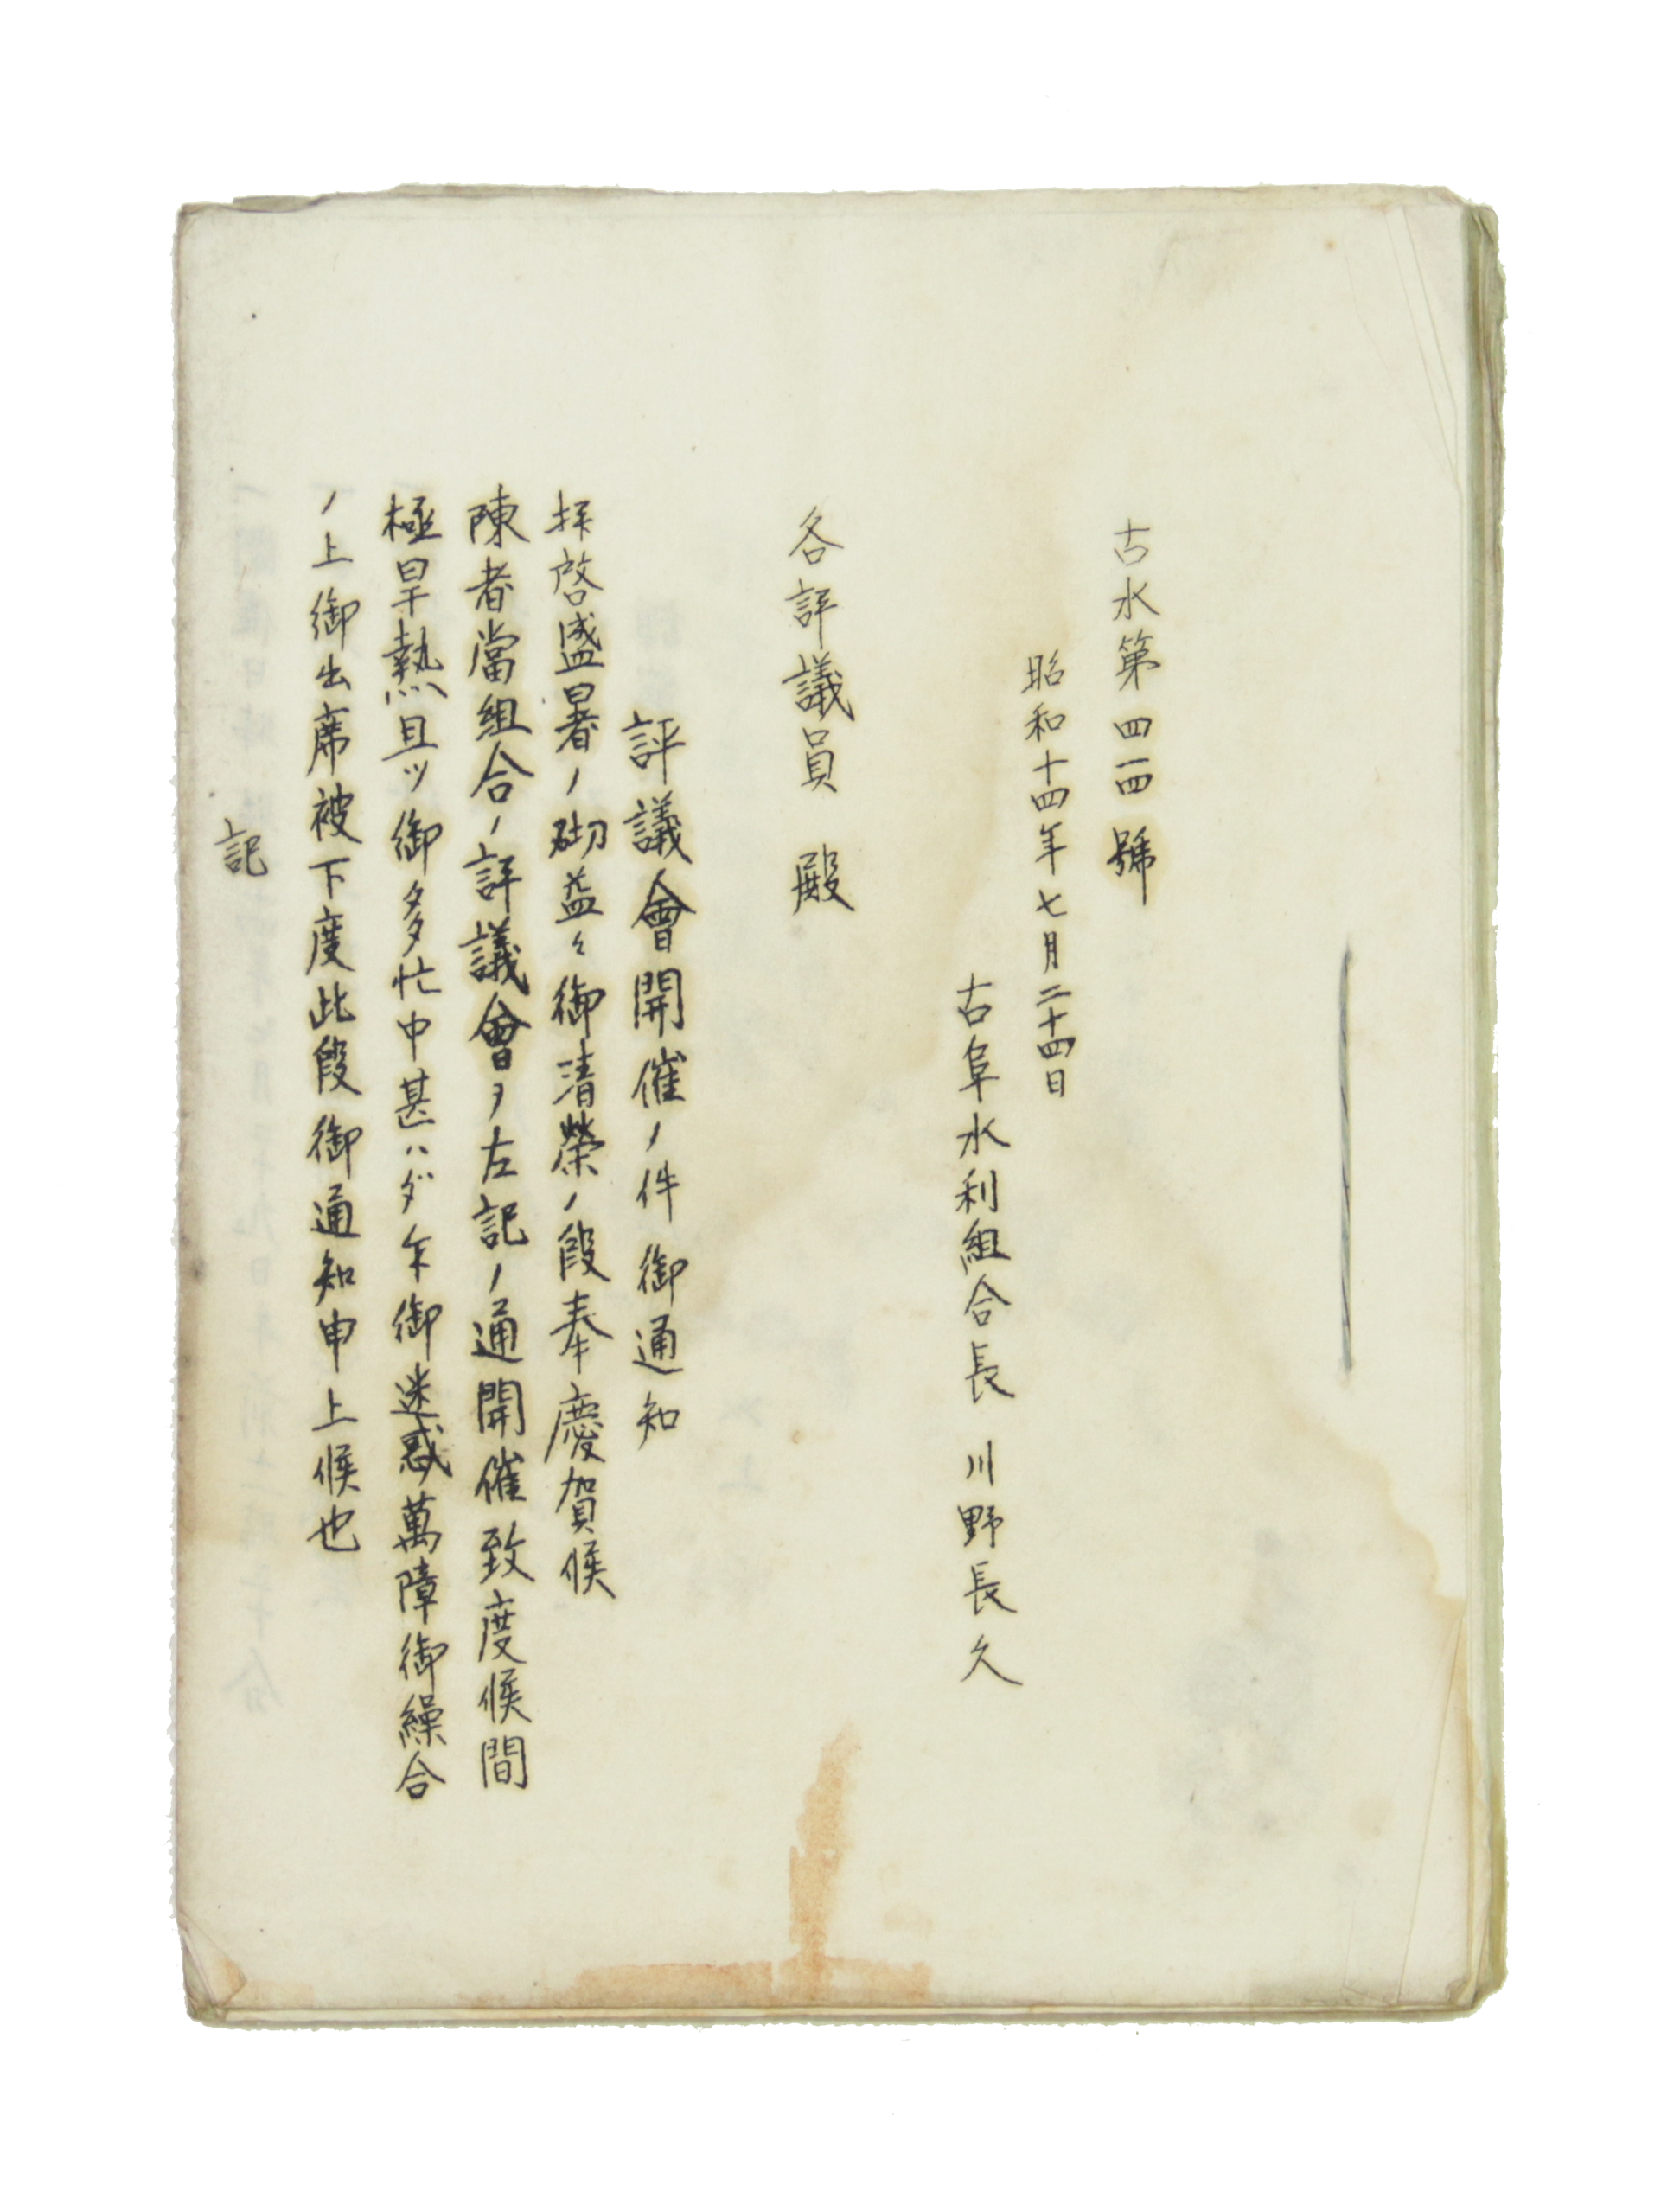 古水第四一四號
昭和十四年七月二十四日
古阜水利組合長 川野長久
各評議員 殿
評議會開催ノ件御通知
拝啓盛暑ノ砌益々御清榮ノ段奉慶賀候
陳者當組合ノ評議會ヲ左記ノ通開催致度候間
極旱熱且ツ御多忙中甚ハダ乍御迷惑萬障御繰合
ノ上御出席被下度此段御通知申上候也
記